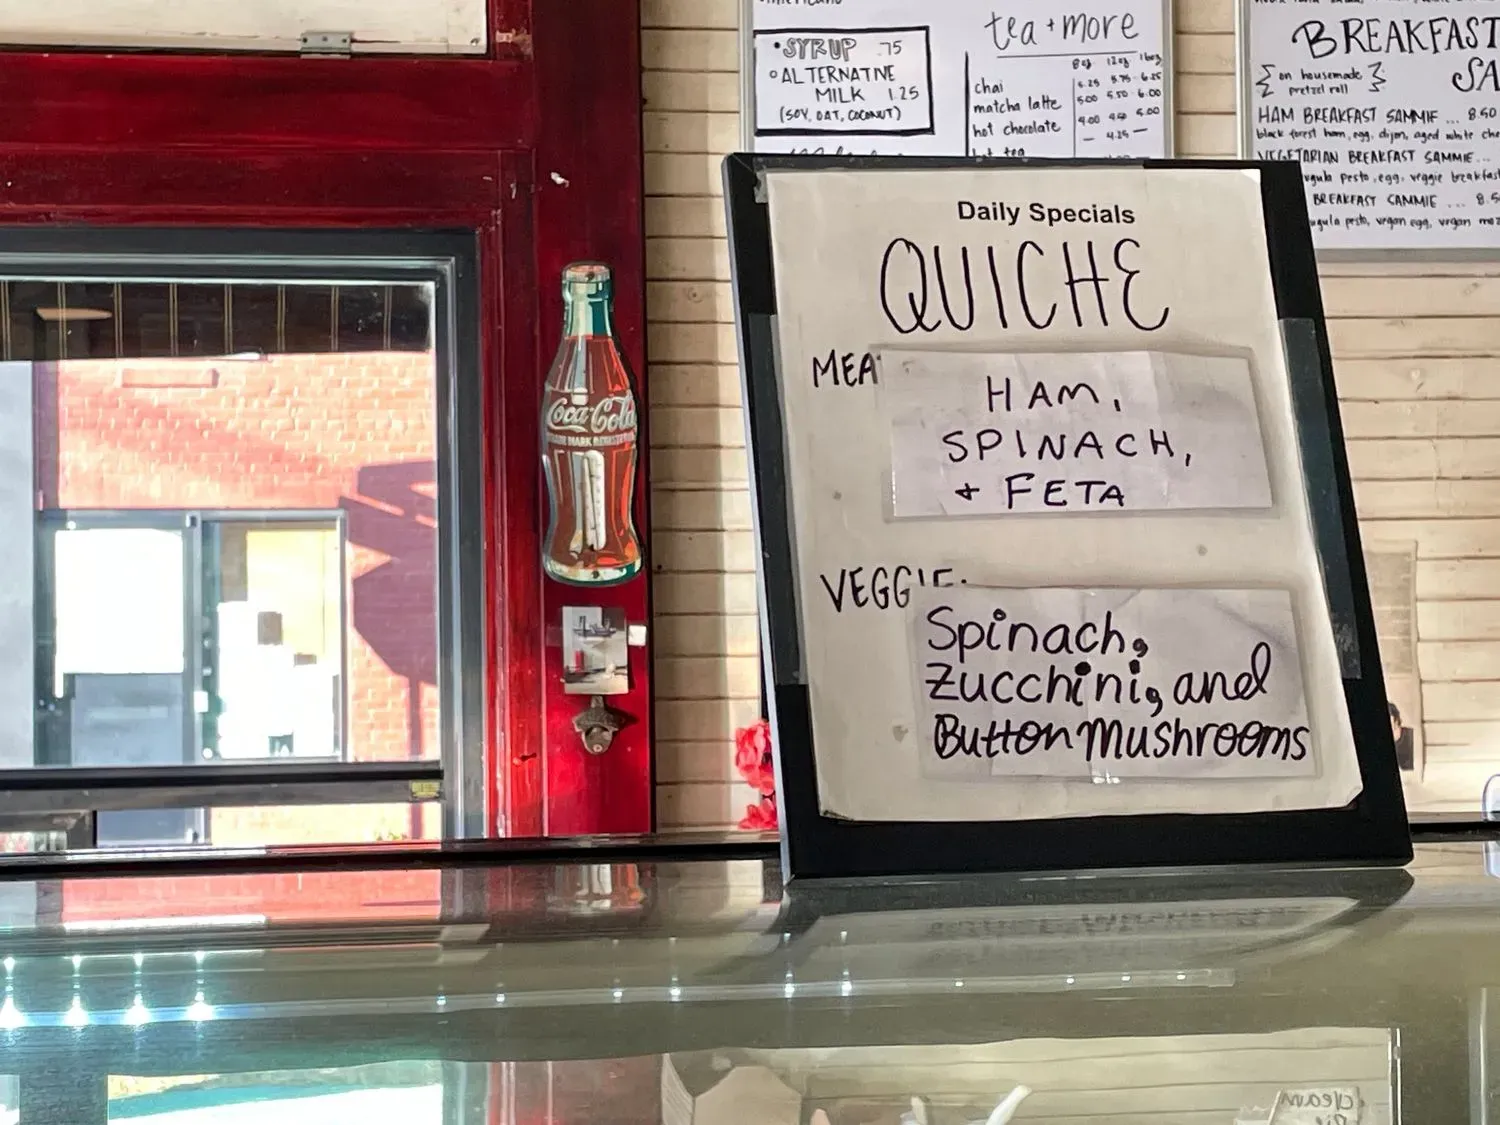 •SYRUP .75
ALTERNATIVE
MILK 1.25
(SOY, OAT, COCONUT)
tea + more
8oz 12oz 16oz
chai 5.25 5.75 6.25
matcha latte 5.00 5.50 6.00
hot chocolate 4.00 4.50 5.00
— 4.25 —
hot tea
BREAKFAST
SA
{ on housemade }
pretzel roll
HAM BREAKFAST SAMMIE ... 8.50
black forest ham, egg, dijon, aged white che
VEGETARIAN BREAKFAST SAMMIE...
ugula pesto, egg, veggie breakfas
BREAKFAST SAMMIE ... 8.5
ugula pesto, vegan egg, vegan moz
Daily Specials
QUICHE
MEAT
HAM,
SPINACH,
+ FETA
VEGGIE:
Spinach,
Zucchini, and
Button Mushrooms
Coca-Cola
TRADE MARK REGISTERED